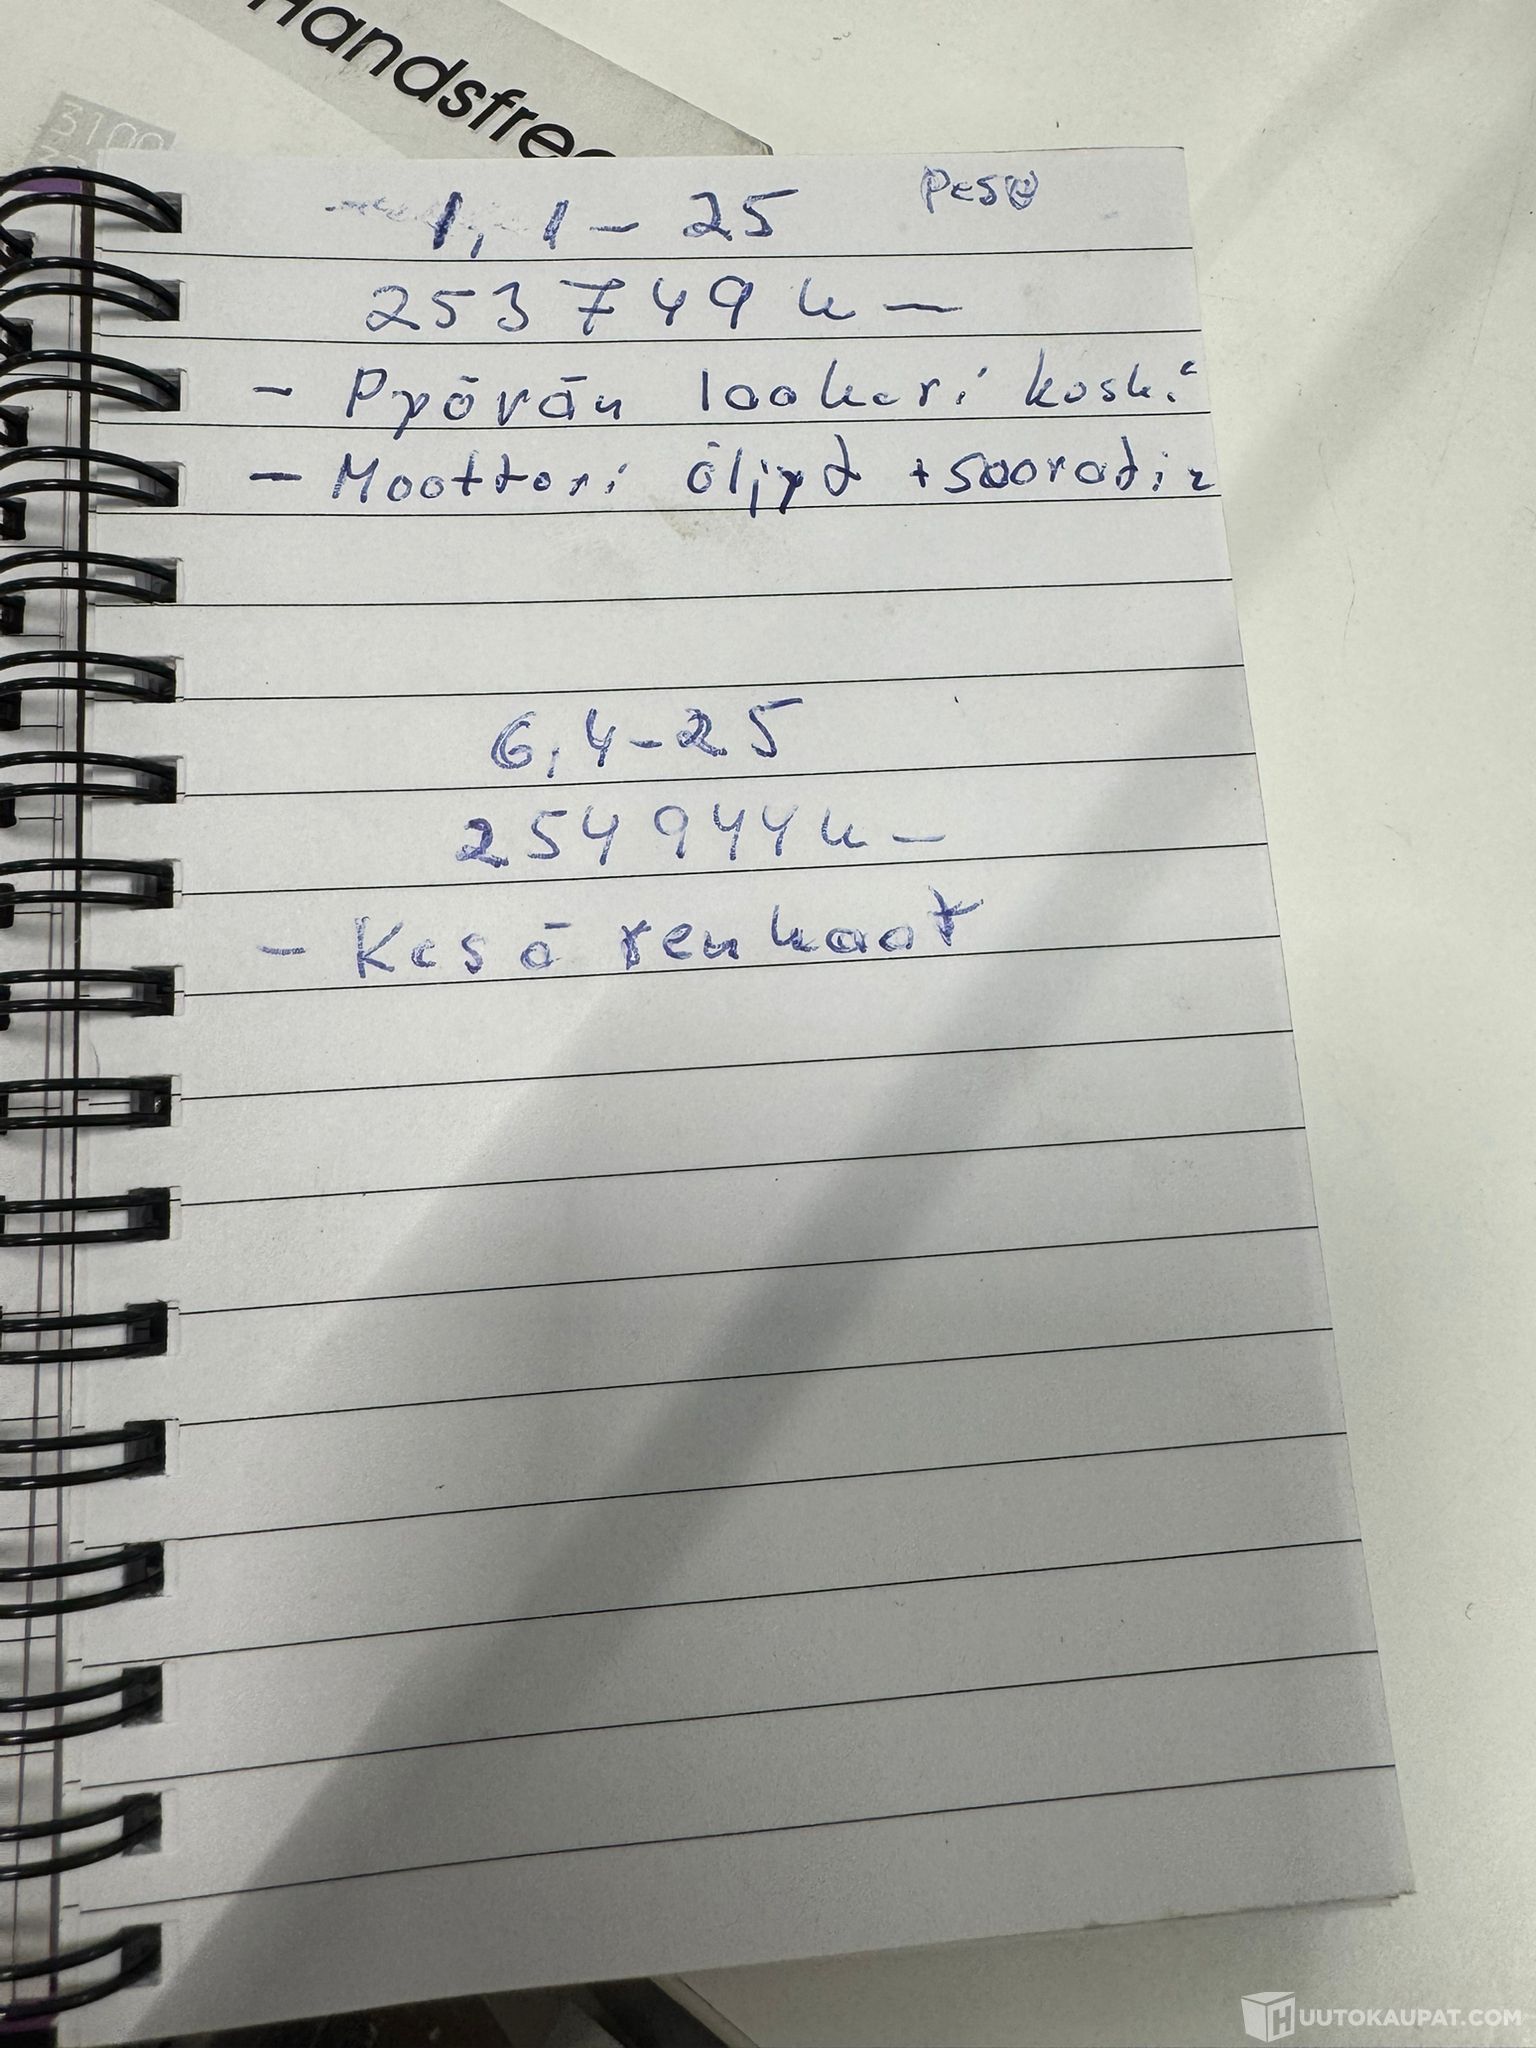 Handsfree
3100
1,1-25 Pesu
253749km
- Pyörän laakeri koski
- Moottori öljyt + suodatin
6,4-25
254944km
- Kesä renkaat
HUUTOKAUPAT.COM